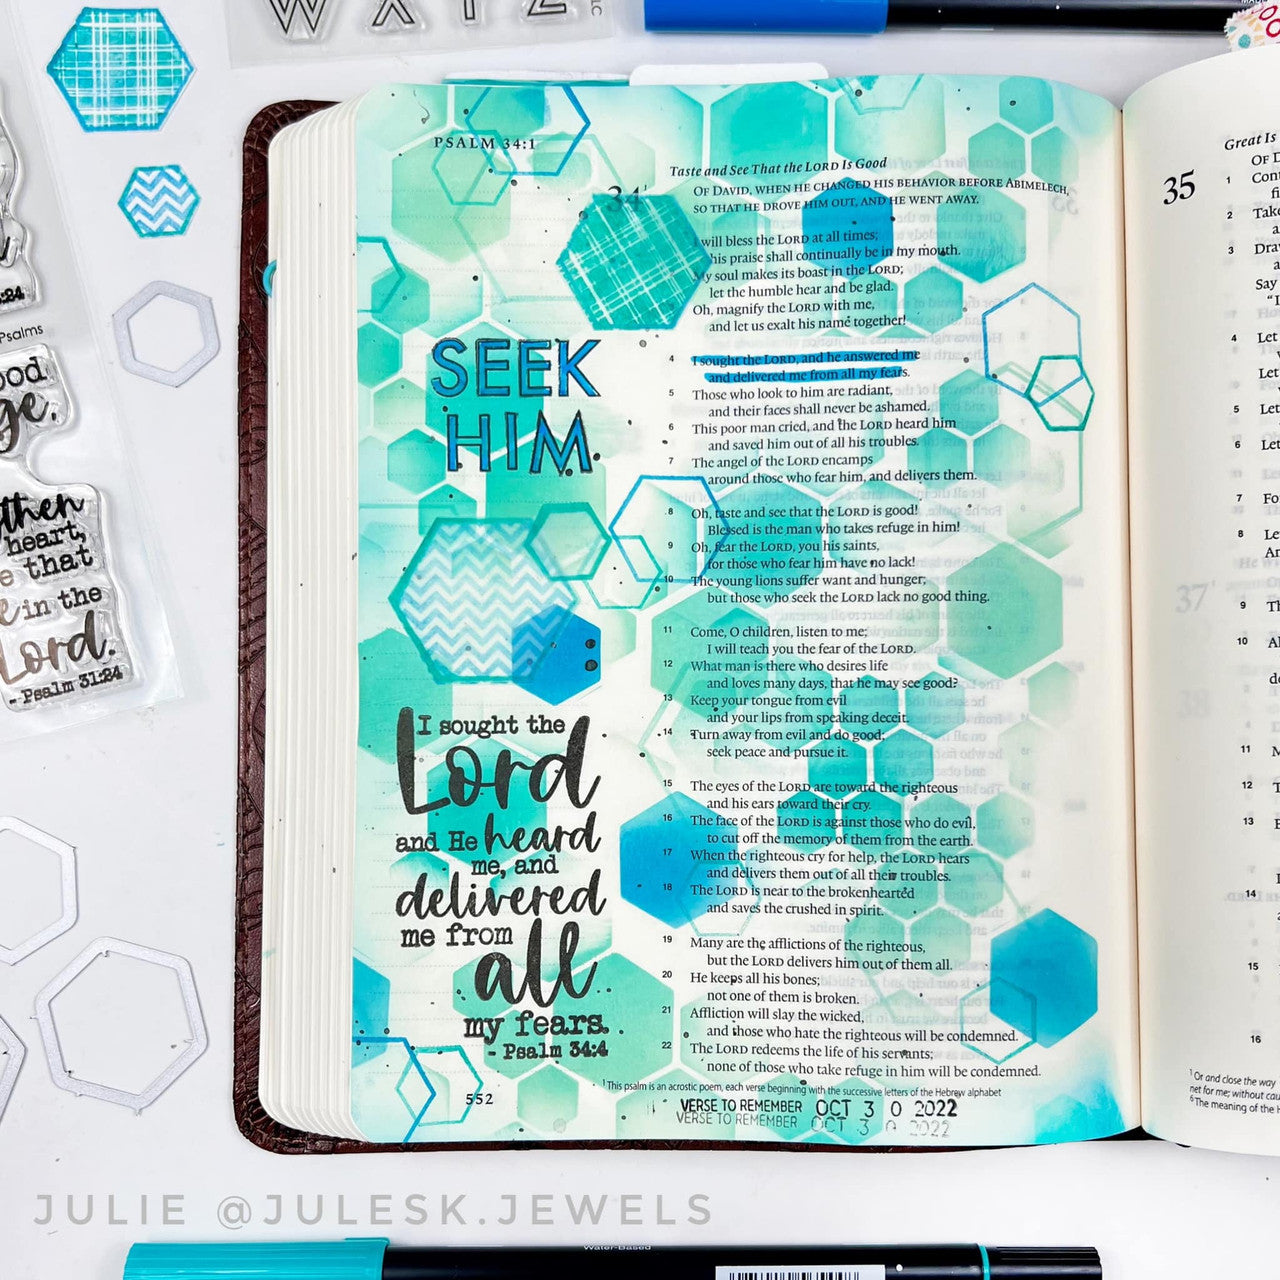 W X Y Z
LLC
:24
Psalms
ood
ge.
then
heart,
e that
e in the
Lord.
- Psalm 31:24
PSALM 34:1
34
Taste and See That the LORD Is Good
OF DAVID, WHEN HE CHANGED HIS BEHAVIOR BEFORE ABIMELECH,
SO THAT HE DROVE HIM OUT, AND HE WENT AWAY.
I will bless the LORD at all times;
his praise shall continually be in my mouth.
My soul makes its boast in the LORD;
let the humble hear and be glad.
Oh, magnify the LORD with me,
and let us exalt his name together!
4 I sought the LORD, and he answered me
and delivered me from all my fears.
5 Those who look to him are radiant,
and their faces shall never be ashamed.
6 This poor man cried, and the LORD heard him
and saved him out of all his troubles.
7 The angel of the LORD encamps
around those who fear him, and delivers them.
8 Oh, taste and see that the LORD is good!
Blessed is the man who takes refuge in him!
9 Oh, fear the LORD, you his saints,
for those who fear him have no lack!
10 The young lions suffer want and hunger;
but those who seek the LORD lack no good thing.
11 Come, O children, listen to me;
I will teach you the fear of the LORD.
12 What man is there who desires life
and loves many days, that he may see good?
13 Keep your tongue from evil
and your lips from speaking deceit.
14 Turn away from evil and do good;
seek peace and pursue it.
15 The eyes of the LORD are toward the righteous
and his ears toward their cry.
16 The face of the LORD is against those who do evil,
to cut off the memory of them from the earth.
17 When the righteous cry for help, the LORD hears
and delivers them out of all their troubles.
18 The LORD is near to the brokenhearted
and saves the crushed in spirit.
19 Many are the afflictions of the righteous,
but the LORD delivers him out of them all.
20 He keeps all his bones;
not one of them is broken.
21 Affliction will slay the wicked,
and those who hate the righteous will be condemned.
22 The LORD redeems the life of his servants;
none of those who take refuge in him will be condemned.
1 This psalm is an acrostic poem, each verse beginning with the successive letters of the Hebrew alphabet
VERSE TO REMEMBER OCT 3 0 2022
VERSE TO REMEMBER OCT 3 0 2022
SEEK
HIM
I sought the
Lord
and He heard
me, and
delivered
me from
all
my fears.
- Psalm 34:4
552
Great Is
OF D
35
1 Cont
fi
2 Take
a
3 Draw
a
Say
"I
4 Let
Let
5 Let
6 Let
7 Fo
8 Le
An
9 Th
10 Al
de
11 M
12 T
13
14
15
16
1 Or and close the way
net for me; without cau
6 The meaning of the H
JULIE @JULESK.JEWELS
Water-Based